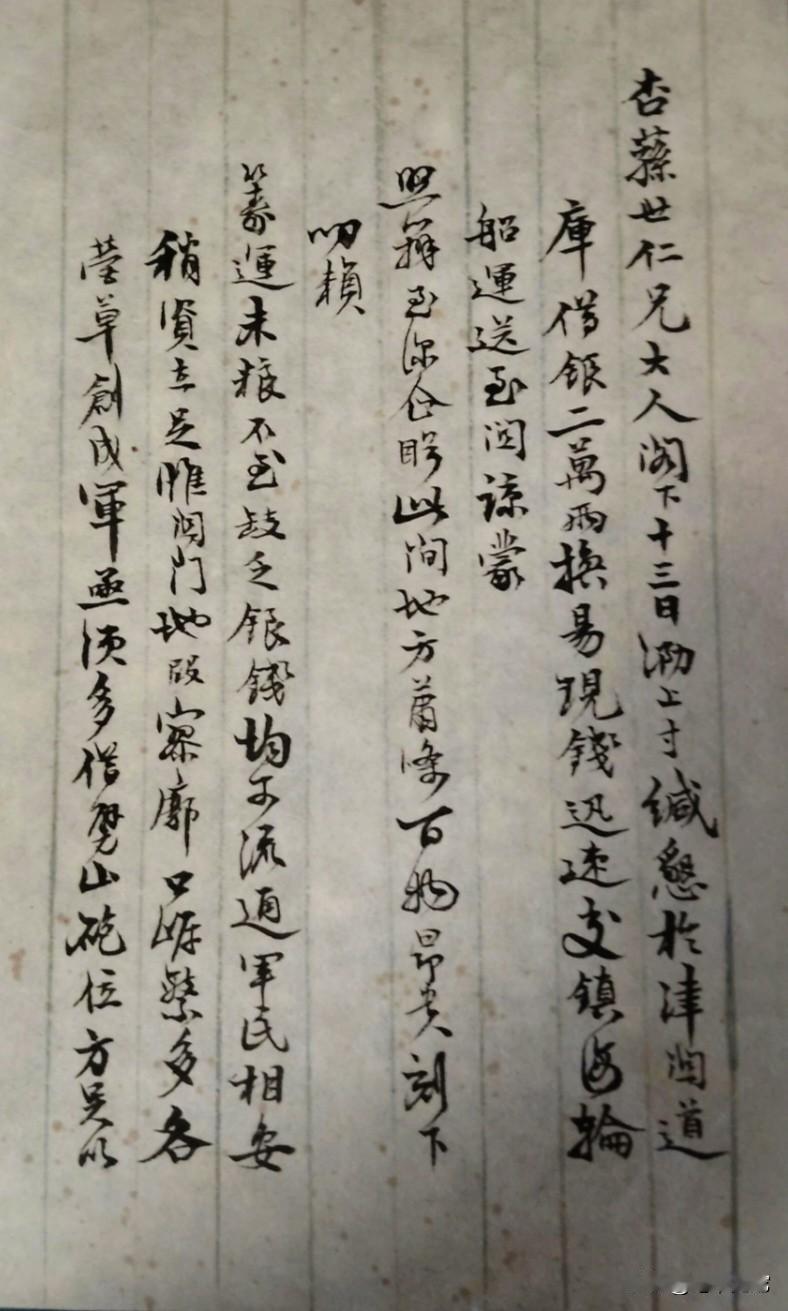 杏蓀世仁兄大人閣下十三日泐上寸緘懇於津関道
庫借銀二萬兩換易現錢迅速交鎮海輪
船運送至関諒蒙
照辦至深企盼此間地方蕭條百物昂貴刻下
叨賴
籌運米糧不至缺乏銀錢均可流通軍民相安
稍資立足惟関門地段寥廓口岸繁多各
營草創成軍亟須多借劈山砲位方足以